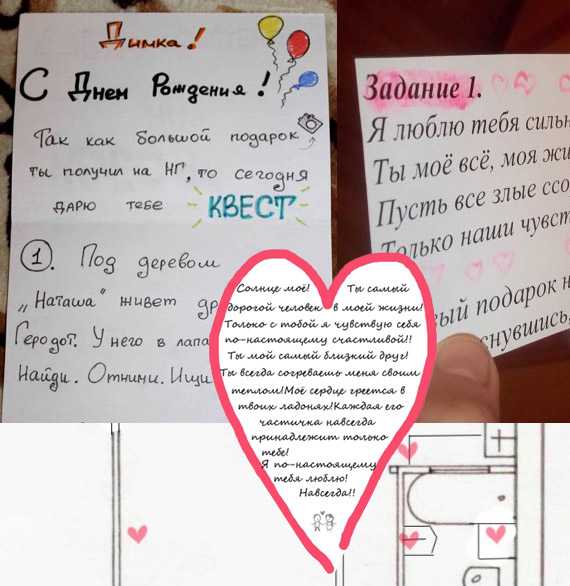 Димка!
С Днем Рождения!
Так как большой подарок
ты получил на НГ, то сегодня
дарю тебе КВЕСТ
1. Под деревом
„Наташа" живет
Геродот. У него в лапа
Найди. Отними. Ищи
Задание 1.
Я люблю тебя сильн
Ты моё всё, моя жи
Пусть все злые ссо
Только наши чувст
вый подарок н
снувшись,
Солнце моё! Ты самый
дорогой человек в моей жизни!
Только с тобой я чувствую себя
по-настоящему счастливой!!
Ты мой самый близкий друг!
Ты всегда согреваешь меня своим
теплом!Моё сердце греется в
твоих ладонях!Каждая его
частичка навсегда
принадлежит только
тебе!
Я по-настоящему
тебя люблю!
Навсегда!!